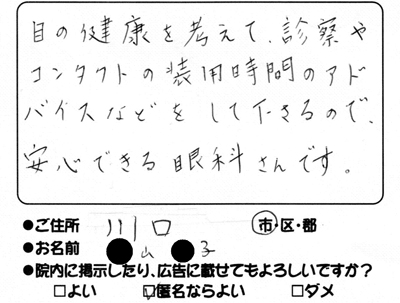 目の健康を考えて、診察や
コンタクトの装用時間のアド
バイスなどをして下さるので、
安心できる眼科さんです。
●ご住所 川口 市・区・郡
●お名前 ●山●子
●院内に掲示したり、広告に載せてもよろしいですか?
□よい ☑匿名ならよい □ダメ